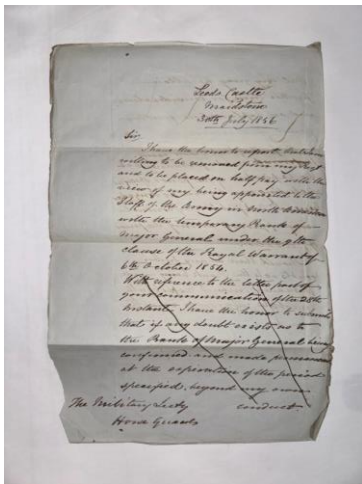 Leeds Castle
Maidstone
30th July 1856
Sir,
I have the honor to report that I am
willing to be removed from my post
and to be placed on half pay with the
view of my being appointed to the
Staff of the Army in North
with the temporary Rank of
Major General under the 9th
clause of the Royal Warrant of
6th October 1854.
With reference to the latter part of
your communication of the 28th
Instant, I have the honor to submit
that if any doubt exists as to
the Rank of Major General being
confirmed and made permanent
at the expiration of the period
specified, beyond my own
conduct
The Military Secty
Horse Guards